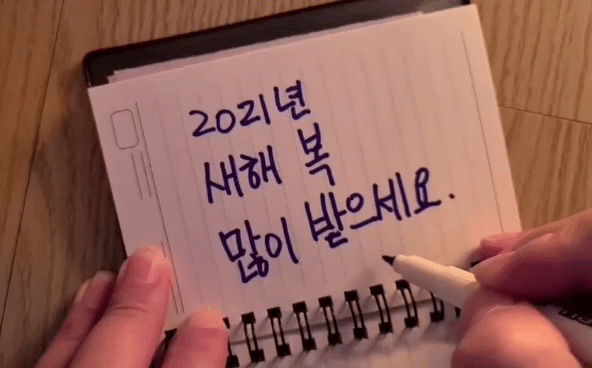 2021년
새해 복
많이 받으세요.